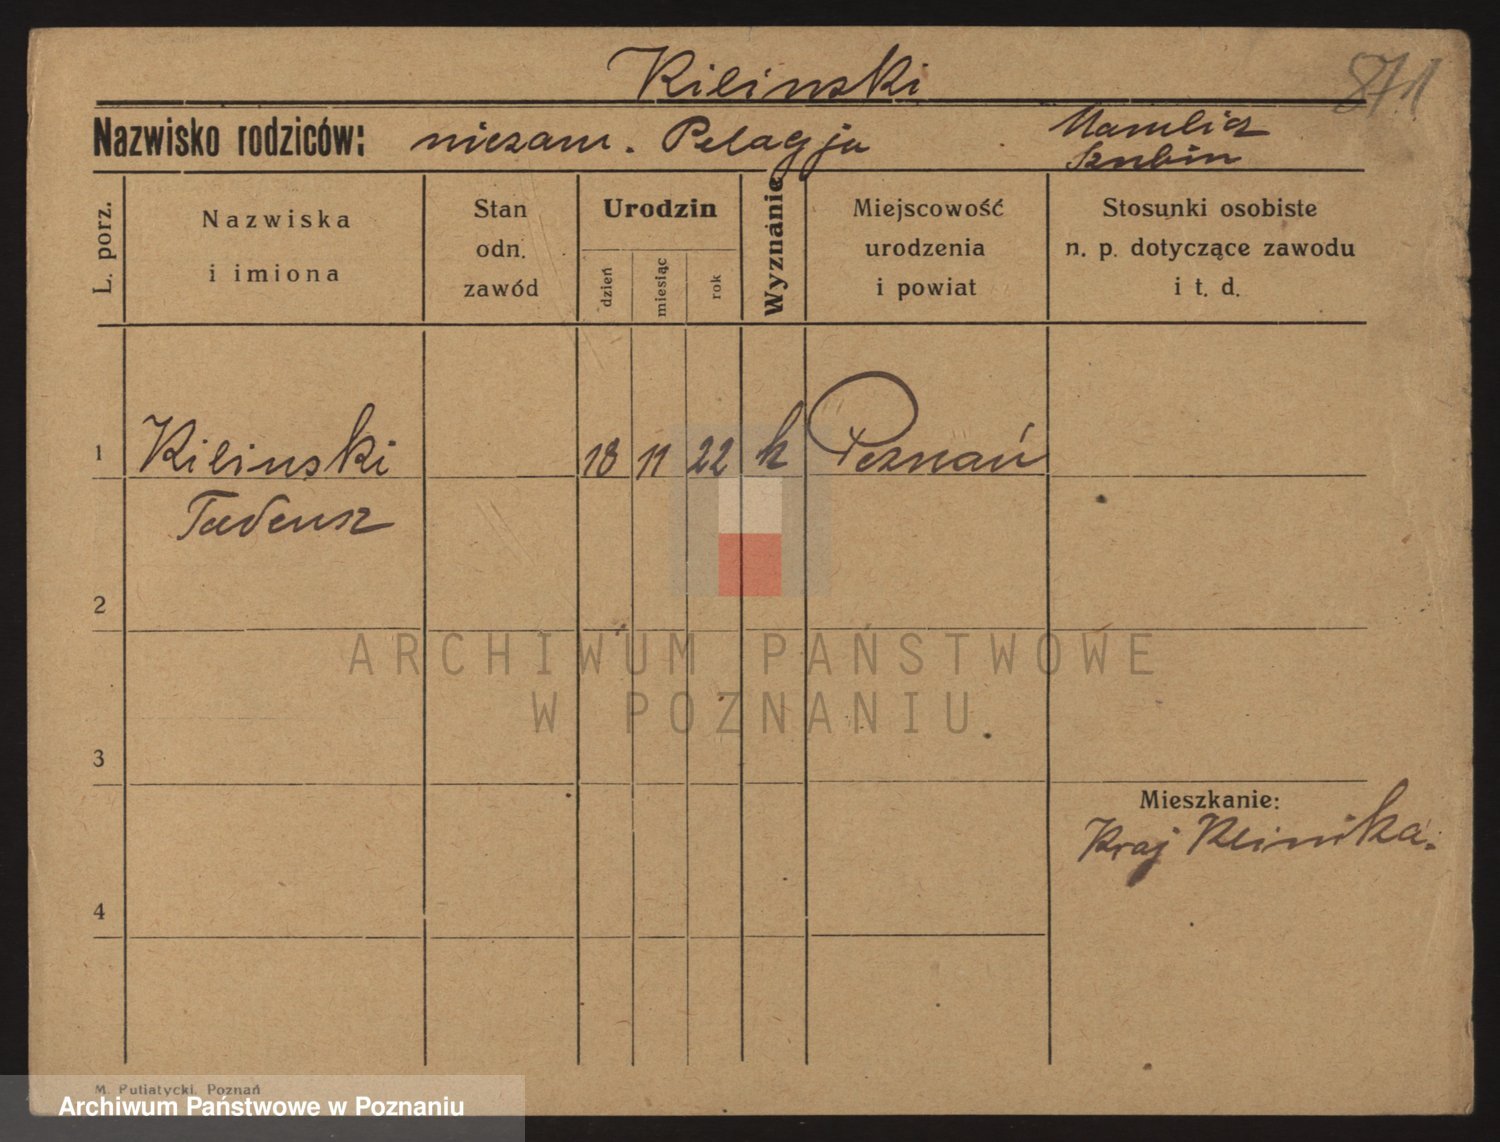 Kilinski
871
Nazwisko rodziców: niezam. Pelagja
Mamlicz
Szubin
L. porz.
Nazwiska
i imiona
Stan
odn.
zawód
Urodzin
dzień
miesiąc
rok
Wyznanie
Miejscowość
urodzenia
i powiat
Stosunki osobiste
n. p. dotyczące zawodu
i t. d.
1 Kilinski 18 11 22 k Poznań
Tadeusz
2
ARCHIWUM PAŃSTWOWE
W POZNANIU
3
Mieszkanie:
Kraj Klinika.
4
M. Putiatycki, Poznań
Archiwum Państwowe w Poznaniu